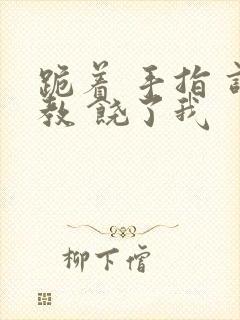 跪着 手指 
教 饶了我
柳下僧